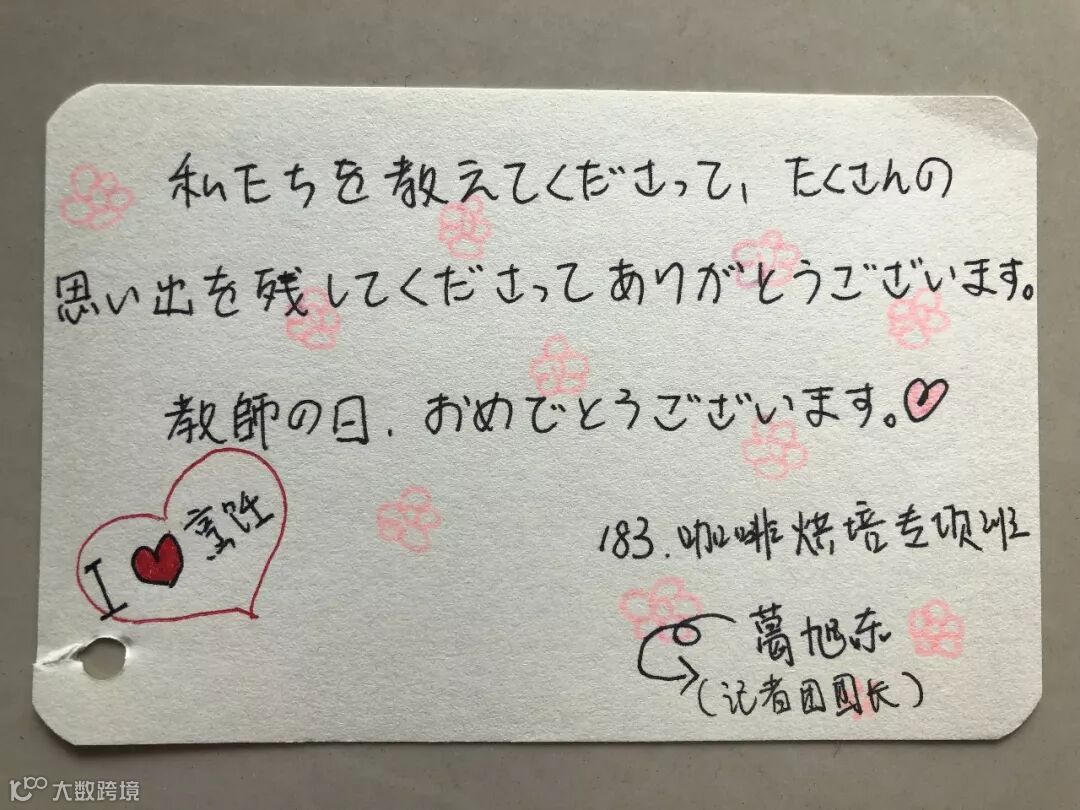 私たちを教えてくださって、たくさんの
思い出を残してくださってありがとうございます。
教師の日、おめでとうございます。
I 烹饪
183.咖啡烘培专项班
葛旭东
(记者团团长)
大数跨境